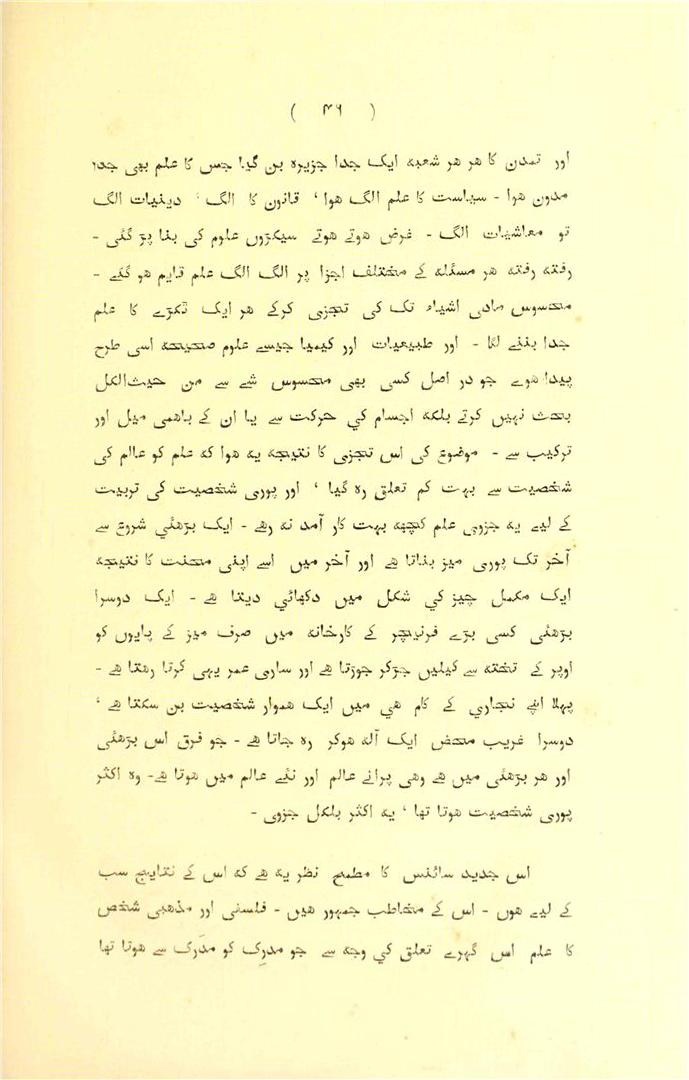 ( ۴۶ )
اور تمدن کا هر هر شعبه ایک جدا جزیرہ بن گیا جس کا علم بھی جدا
مدون هوا - سیاست کا علم الگ هوا ' قانون کا الگ ' دینیات الگ
تو معاشیات الگ - غرض هوتے هوتے سیکڑوں علوم کی بنا پڑ گئی -
رفته رفته هر مسئله کے مختلف اجزا پر الگ الگ علم قایم هو گئے -
محسوس مادی اشیاء تک کی تجزی کرکے هر ایک ٹکڑے کا علم
جدا بننے لگا - اور طبیعیات اور کیمیا جیسے علوم صحیحه اسی طرح
پیدا هوے جو در اصل کسی بھی محسوس شے سے من حیث الکل
بحث نہیں کرتے بلکه اجسام کي حرکت سے یا ان کے باهمی میل اور
ترکیب سے - موضوع کی اس تجزی کا نتیجه یه هوا که علم کو عالم کی
شخصیت سے بہت کم تعلق رہ گیا ' اور پوری شخصیت کی تربیت
کے لیے یه جزوی علم کچھه بہت کار آمد نه رهے - ایک بڑھئي شروع سے
آخر تک پوری میز بناتا هے اور آخر میں اسے اپنی محنت کا نتیجه
ایک مکمل چیز کي شکل میں دکھائي دیتا هے - ایک دوسرا
بڑھئی کسی بڑے فرنیچر کے کارخانه میں صرف میز کے پایوں کو
اوپر کے تخته سے کیلیں جڑکر جوڑتا هے اور ساری عمر یہی کرتا رهتا هے -
پہلا اپنے نجاري کے کام هي میں ایک هموار شخصیت بن سکتا هے '
دوسرا غریب محض ایک آله هوکر رہ جاتا هے - جو فرق اس بڑھئی
اور هر بڑھئی میں هے وهی پرانے عالم اور نئے عالم میں هوتا هے- وہ اکثر
پوری شخصیت هوتا تھا ' یه اکثر بلکل جزوی -
اس جدید سائنس کا مطمح نظر یه هے که اس کے نتایج سب
کے لیے هوں - اس کے مخاطب جمہور هیں - فلسفی اور مذهبی شخص
کا علم اس گہرے تعلق کی وجه سے جو مدرِک کو مدرَک سے هوتا تھا